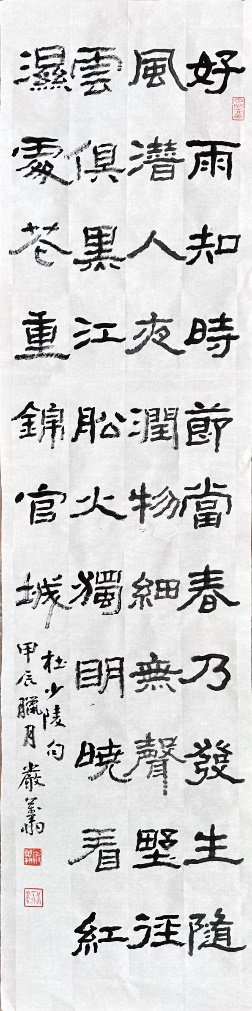 好雨知時節當春乃發生隨
風潛人夜潤物細無聲野徑
雲俱黑江船火獨明曉看紅
濕處花重錦官城
杜少陵句
甲辰臘月嚴